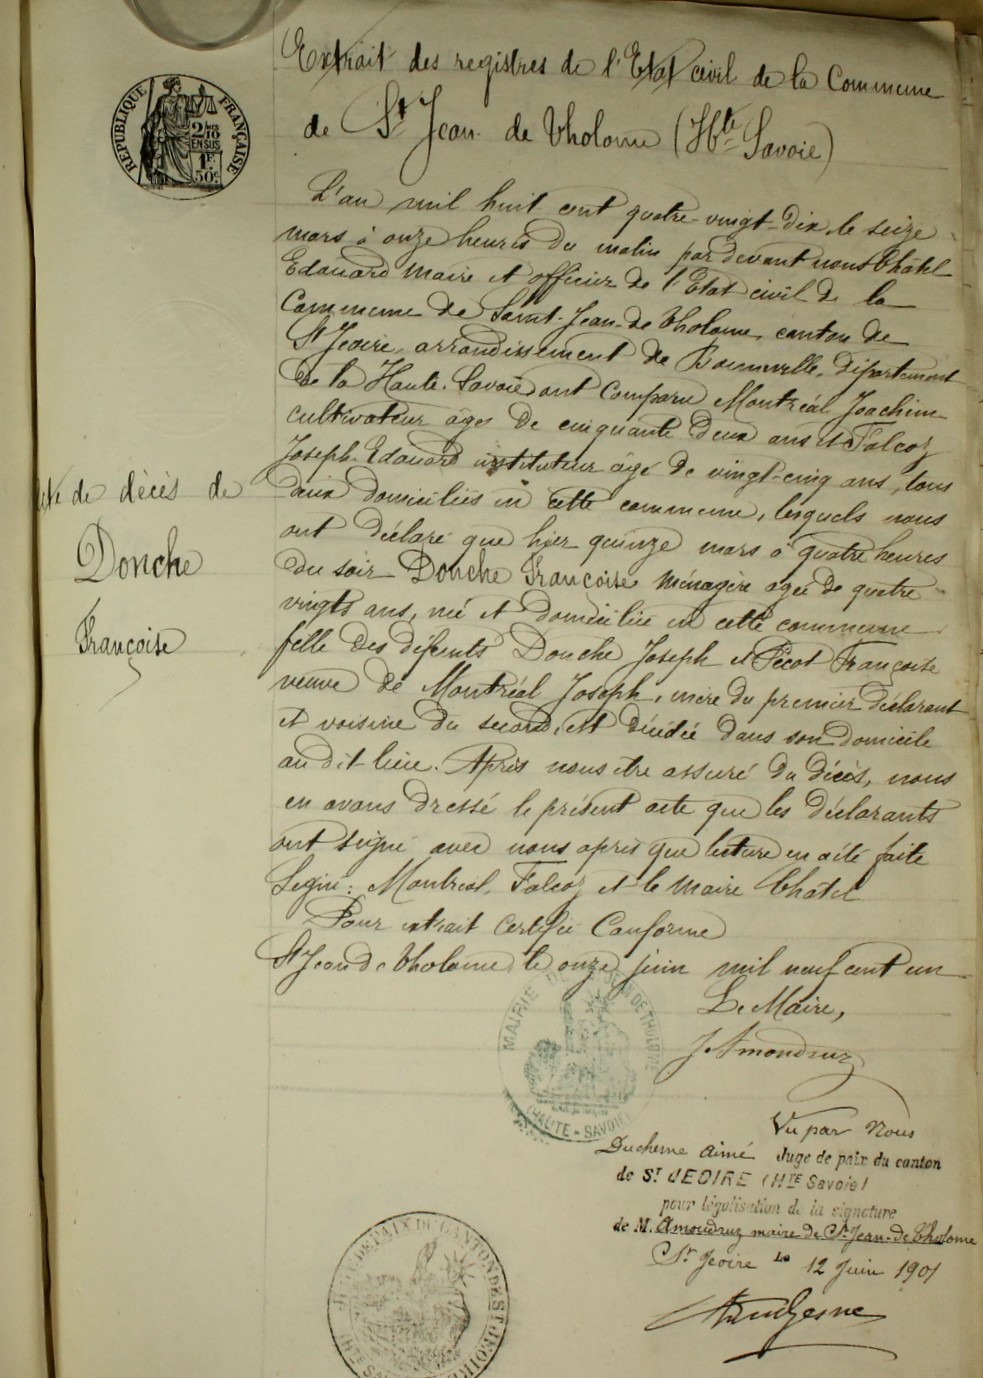 Extrait des registres de l'Etat civil de la Commune
de St Jean de Tholome (Hte Savoie)
RÉPUBLIQUE FRANÇAISE
2/10
EN SUS
1F.
50c.
L'an mil huit cent quatre-vingt-dix, le seize
mars à onze heures du matin par devant nous Châtel
Edouard maire et officier de l'Etat civil de la
Commune de Saint-Jean-de Tholome, canton de
St Jeoire, arrondissement de Bonneville, département
de la Haute-Savoie ont comparu Montréal Joachim
cultivateur âgé de cinquante deux ans et Falcoz
Joseph Edouard instituteur âgé de vingt-cinq ans, tous
deux domiciliés en cette commune, lesquels nous
ont déclaré que hier quinze mars à quatre heures
du soir Donche Françoise ménagère agée de quatre
vingts ans, née et domiciliée en cette commune
fille des défunts Donche Joseph et Pécot Françoise
veuve de Montréal Joseph, mère du premier déclarant
et voisine du second, est décédée dans son domicile
au dit lieu. Après nous être assuré du décès, nous
en avons dressé le présent acte que les déclarants
ont signé avec nous après que lecture en a été faite
Signé: Montréal, Falcoz et le Maire Châtel
Pour extrait certifié Conforme
St Jean de Tholome, le onze juin mil neuf cent un
Le Maire,
J. Amoudruz
Acte de décès de
Donche
Françoise
MAIRIE DE ST JEAN DE THOLOME
(HAUTE-SAVOIE)
Vu par Nous
Duchesne Aimé Juge de paix du canton
de ST JEOIRE (HTE Savoie)
pour légalisation de la signature
de M. Amoudruz maire de St Jean-de Tholome
St Jeoire Le 12 Juin 1901
ADuchesne
JUGE DE PAIX DU CANTON DE ST JEOIRE
(HTE SAVOIE)